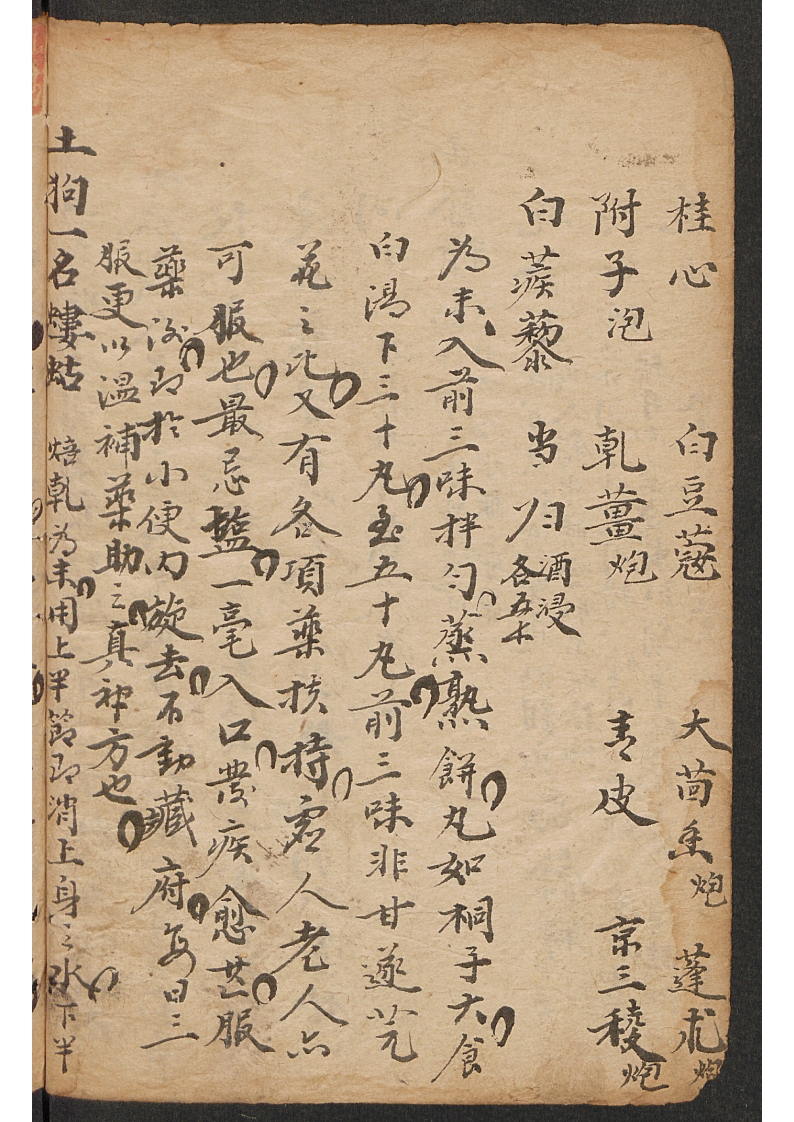 桂心 白豆蔻 大茴香炮 蓬朮炮
附子泡 乾薑炮 青皮 京三稜炮
白蒺藜 当归酒浸各五木
為末入前三味拌勻蒸熟餅丸如桐子大食
白湯下三十丸至五十丸前三味非甘遂芫
花之比又有各項藥扶持虛人老人亦
可服也最忌鹽一毫入口發疾愈甚服
藥後即於小便內旋去不動藏府每日三
服更以溫補藥助之真神方也
土狗一名螻蛄 焙乾為末用上半節即消上身之水下半